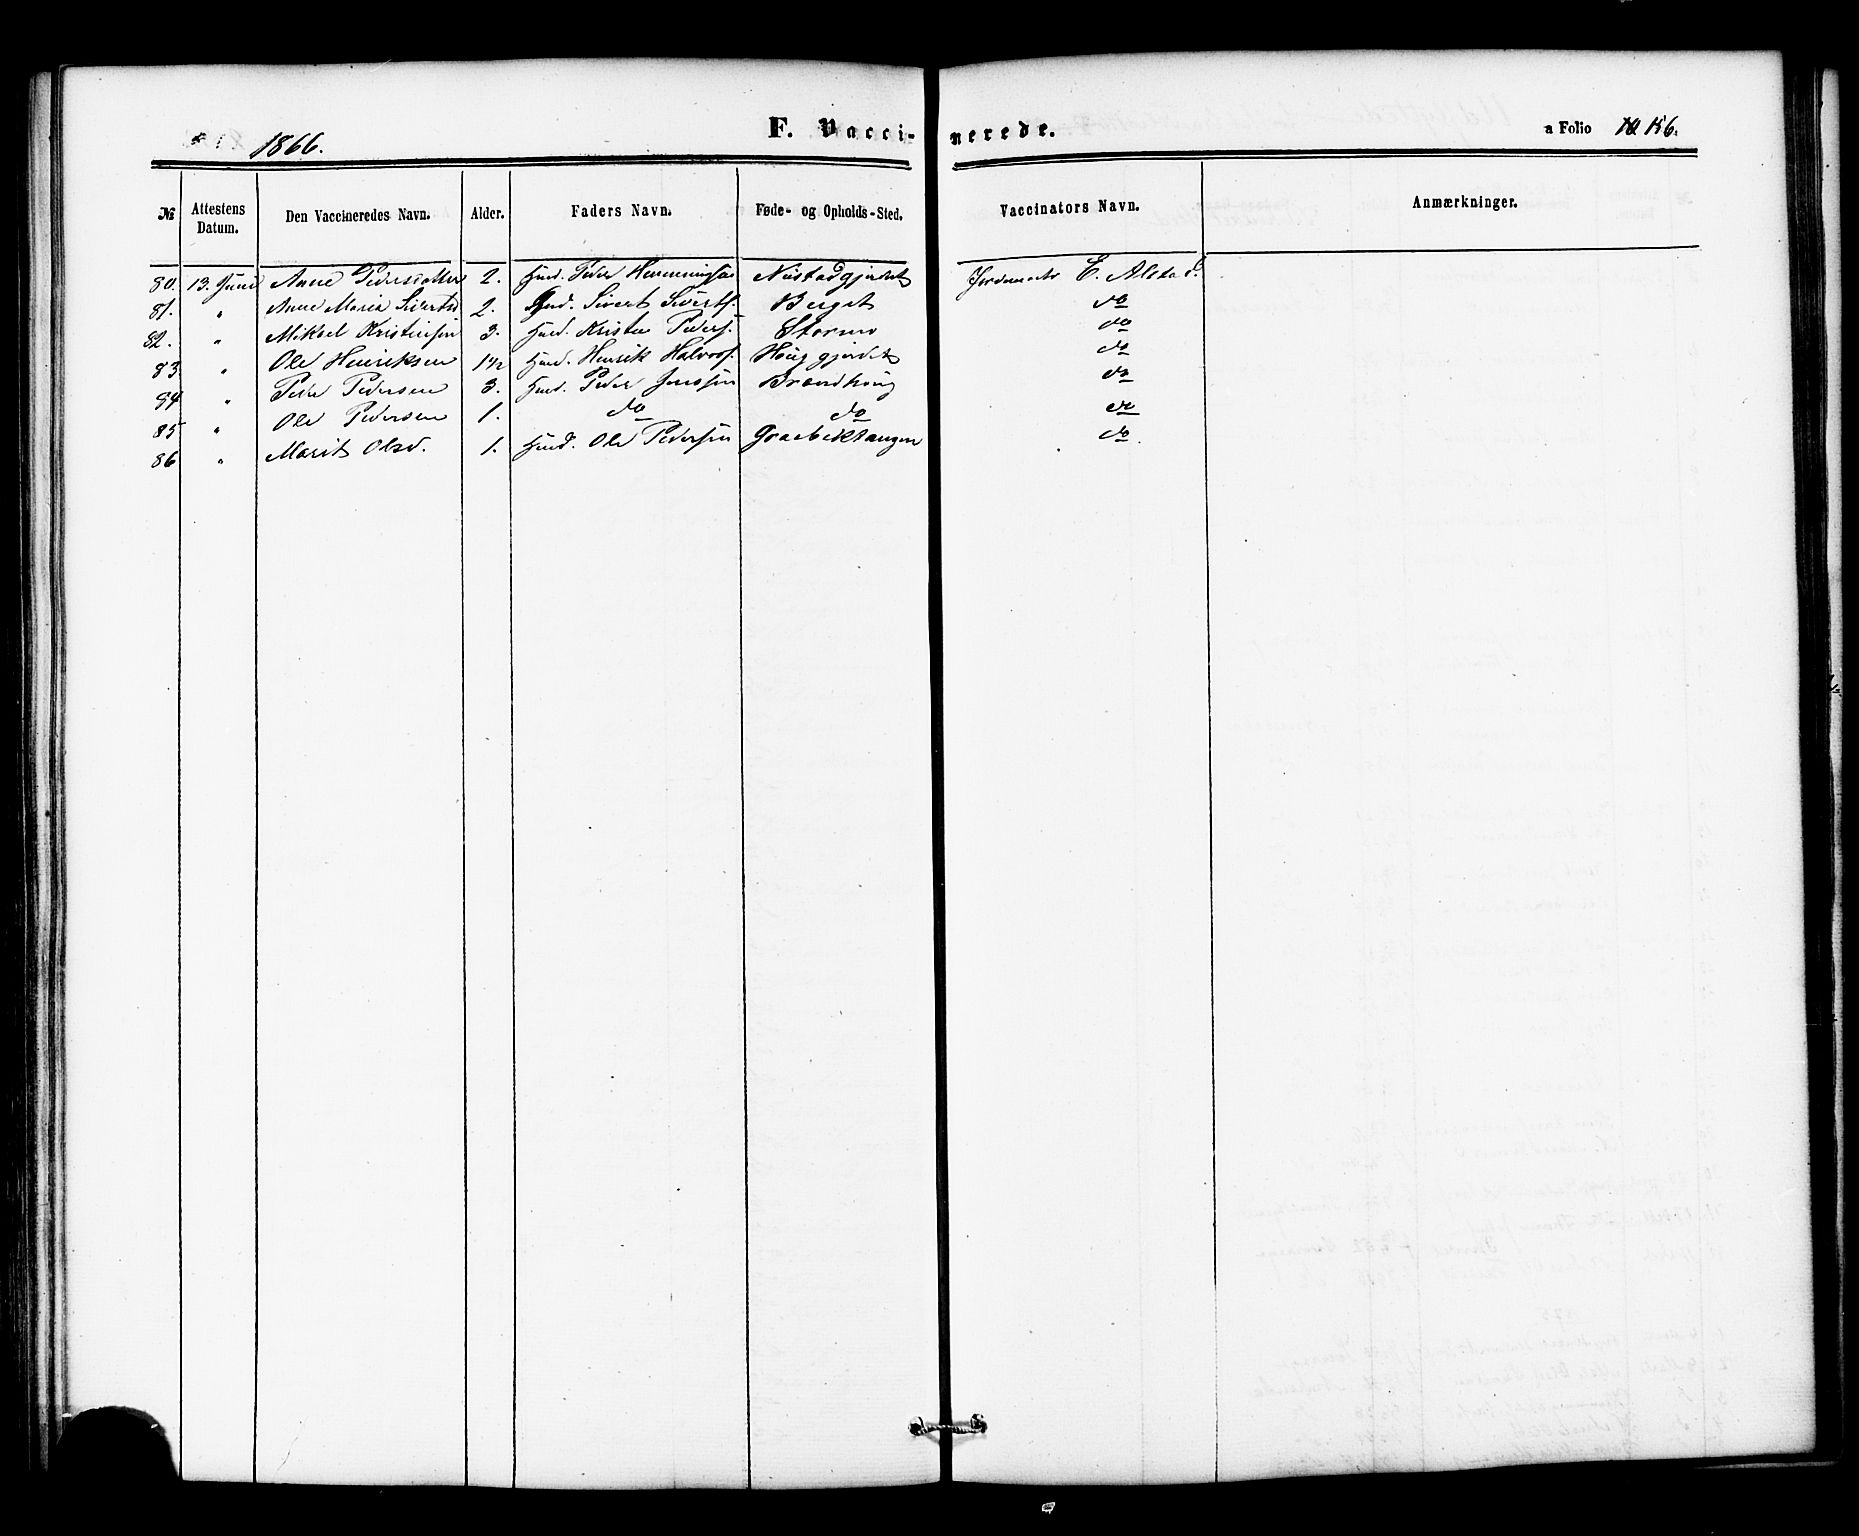 1866.
F. Vaccinerede.
a Folio 156.
№ Attestens Datum. Den Vaccineredes Navn. Alder. Faders Navn. Føde- og Opholds-Sted. Vaccinators Navn. Anmærkninger.
80. 13. Juni Anne Pedersdatter 2. Huusmd. Peder Henningsen Nustadgjerdet Jordemoder E. Alstad.
81. " Anne Maria Sivertsd 2. Gmd. Sivert Siverts. Berget do
82. " Mikael Kristensen 3. Huusmd. Kristen Peders. Stormo do
83 " Ole Henriksen 1½ Huusmd. Henrik Halvors. Houggjerdet do
84 " Peder Pedersen 3. Huusmd. Peder Jenssen Brandhoug do
85 " Ole Pedersen 1. do do do
86 " Marit Olsd. 1. Huusmd. Ole Pedersen Graabektangen do